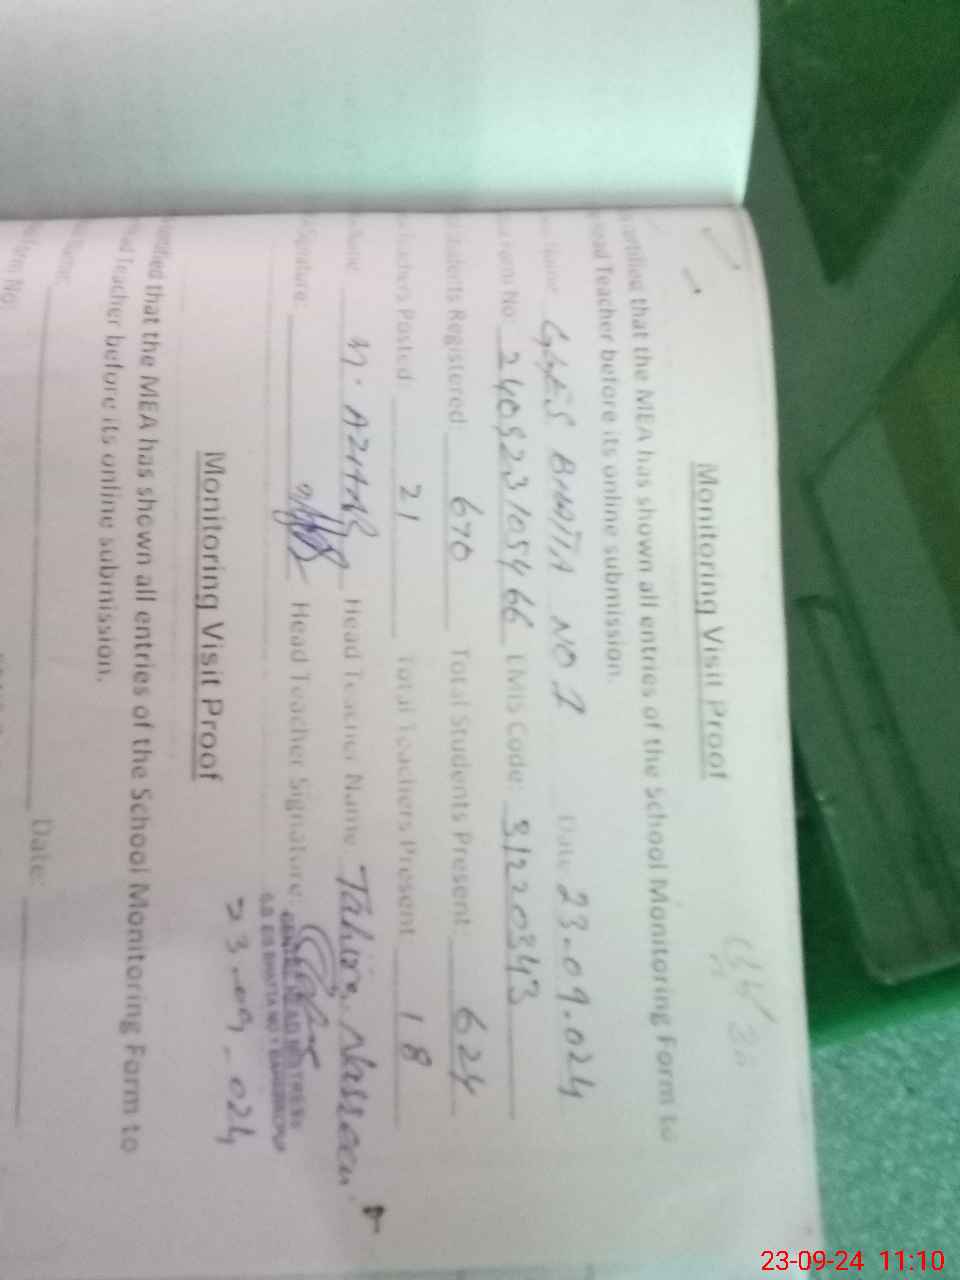 Monitoring Visit Proof
ertified that the MEA has shown all entries of the School Monitoring Form to
ead Teacher before its online submission.
Name BHATTA NO 1 Date 23-09-024
Form No: 240923105466 EMIS Code: 31220343
udents Registered: 670 Total Students Present: 624
eachers Posted 21 Total Teachers Present 18
Name M. AZHAR Head Teacher Name Tahira Nasreen
Signature: Head Teacher Signature:
HEAD MISTRESS
23-09-024
Monitoring Visit Proof
ertified that the MEA has shown all entries of the School Monitoring Form to
ead Teacher before its online submission.
Name: Date:
Form No:
23-09-24 11:10